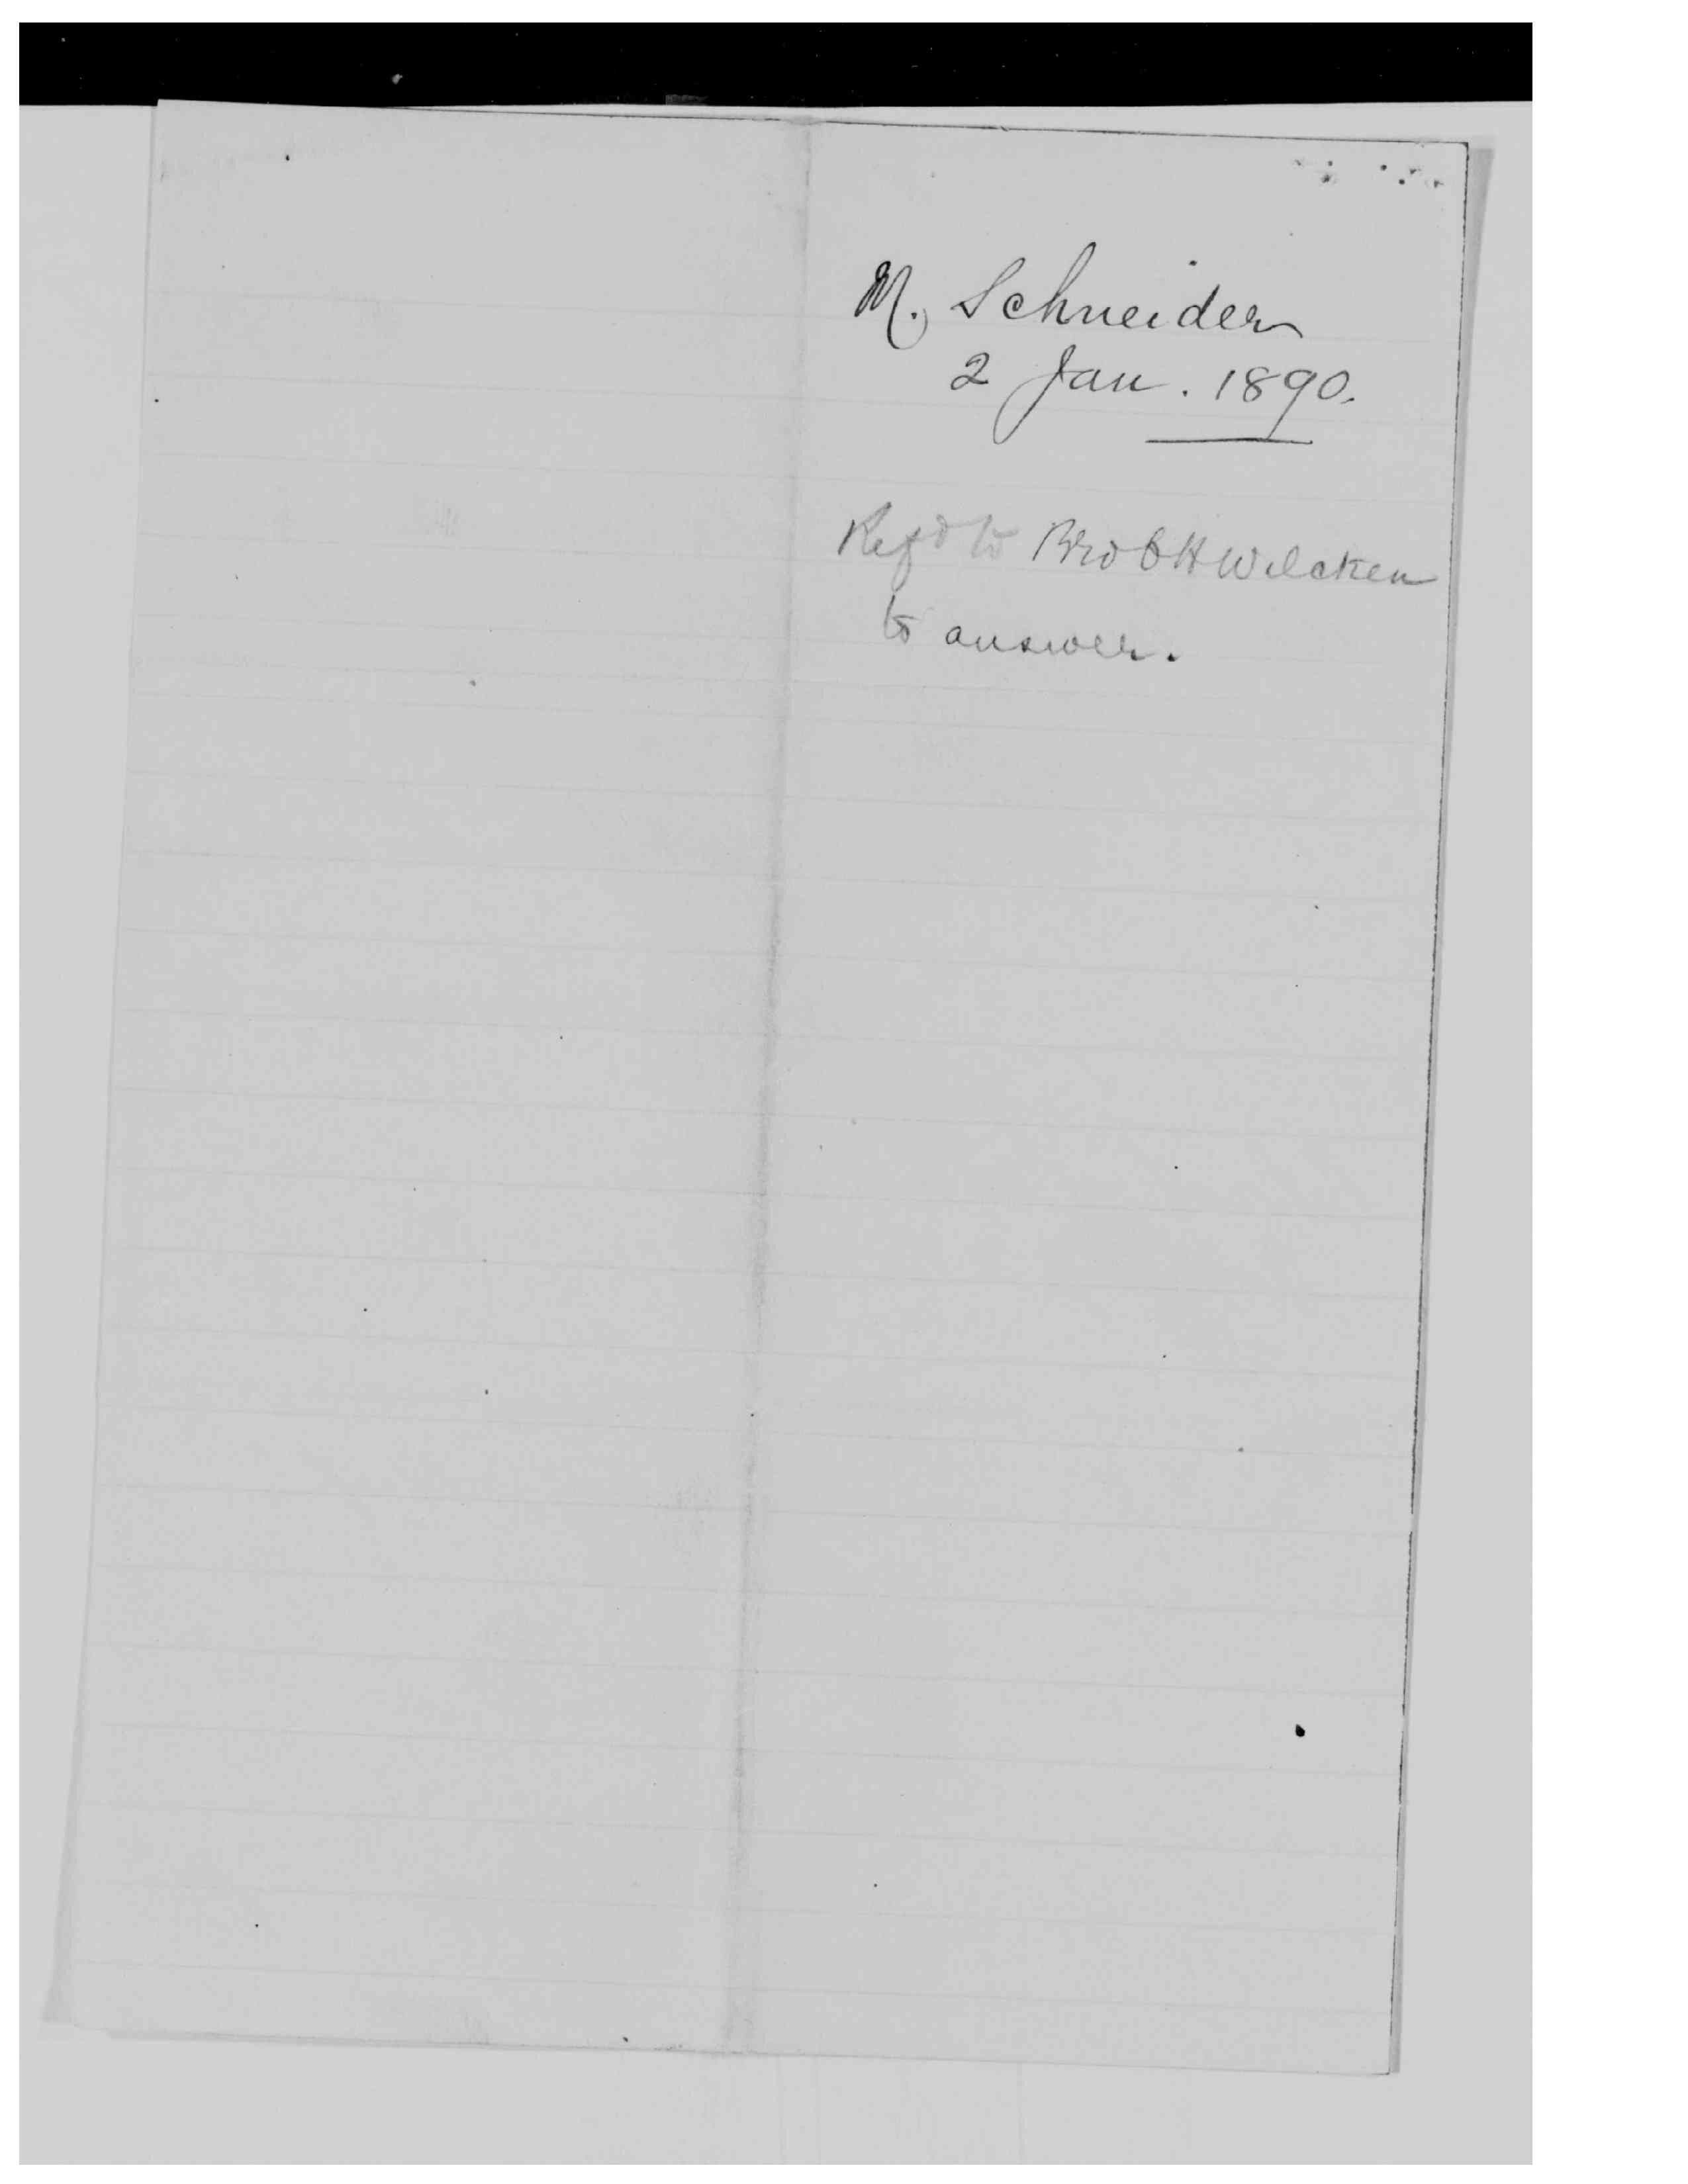 M. Schneider
2 Jan. 1890.
Refd to Bro C H Wilcken
to answer.